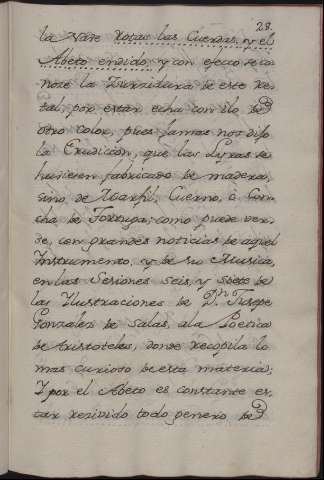 28.
la Nave rotas las Cuerdas, y el
Abeto endido; y con efecto se co
nose la Zursidura de este re-
tal, por estar echa con ilo de
otro color, pues jamas nos dijo
la Erudicion, que las Lyras se
huviesen fabricado de madera,
sino de Marfil, Cuerno, ò Con-
cha de Tortuga; como puede ver-
se, con grandes noticias de aquel
Instrumento, y de su Musica,
en las Sesiones Seis, y Siete de
las Ilustraciones de Dn. Jusepe
Gonzalez de Salas, a la Poetica
de Aristoteles, donde recopila lo
mas curioso de esta materia;
I por el Abeto es constante es-
tar resivido todo genero de